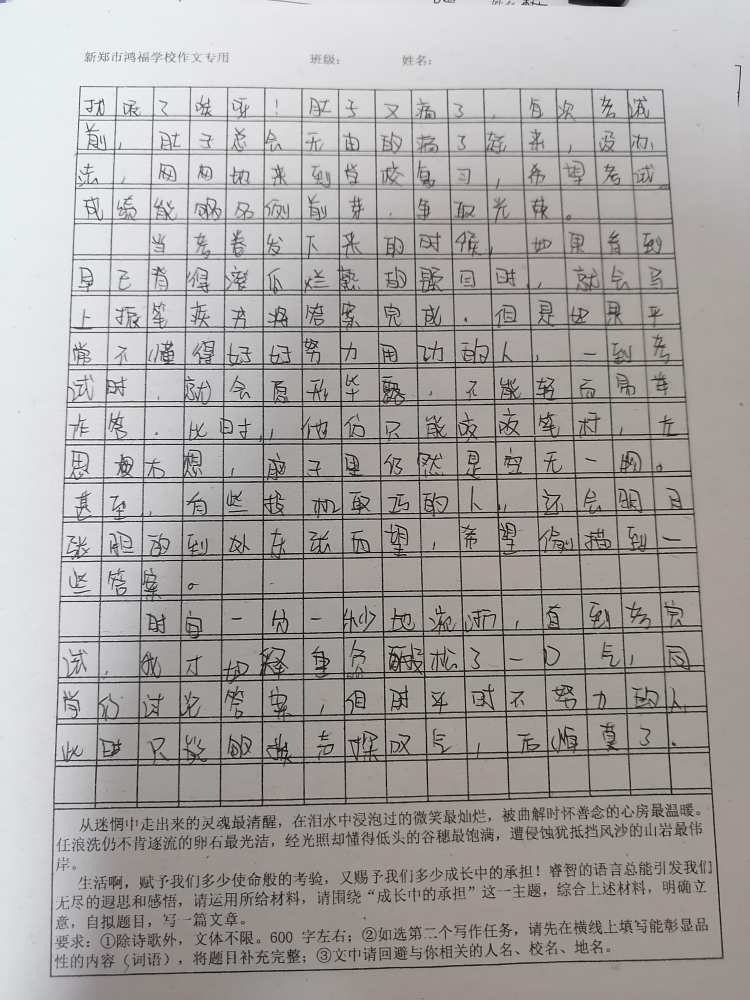 新郑市鸿福学校作文专用 班级： 姓名：
了哎呀！肚子又痛了，每次考试
前，肚子总会无由的痛了起来，没办
法，匆匆地来到学校复习，希望考试
成绩能够名列前茅，争取光荣。
当考卷发下来的时候，如果看到
早已背得滚瓜烂熟的题目时，就会马
上振笔疾书将答案完成。但是如果平
常不懂得好好努力用功的人，一到考
试时，就会原形毕露，不能轻而易举
作答。此时，他们只能咬咬笔杆，左
思想，脑子里仍然是空无一物。
甚至，有些投机取巧的人，还会明目
张胆的到处东张西望，希望偷描到一
些答案。
时间一分一秒地流逝，直到考完
试，我才如释重负松了一口气，同
学们讨论答案，但时平时不努力的人，
此时只能唉声探叹气，后悔莫了。
从迷惘中走出来的灵魂最清醒，在泪水中浸泡过的微笑最灿烂，被曲解时怀善念的心房最温暖。
任浪洗仍不肯逐流的卵石最光洁，经光照却懂得低头的谷穗最饱满，遭侵蚀犹抵挡风沙的山岩最伟
岸。
生活啊，赋予我们多少使命般的考验，又赐予我们多少成长中的承担！睿智的语言总能引发我们
无尽的遐思和感悟，请运用所给材料，请围绕“成长中的承担”这一主题，综合上述材料，明确立
意，自拟题目，写一篇文章。
要求：①除诗歌外，文体不限。600 字左右；②如选第二个写作任务，请先在横线上填写能彰显品
性的内容（词语），将题目补充完整；③文中请回避与你相关的人名、校名、地名。